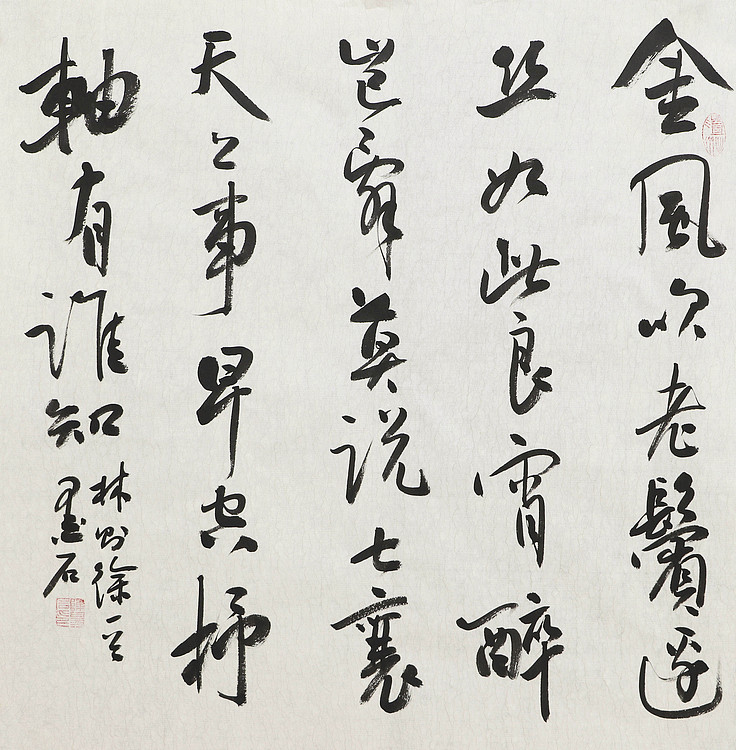 金風吹老鬢邊
丝如此良宵醉
豈辭莫说七襄
天上事早空杼
軸有誰知
林则徐
石